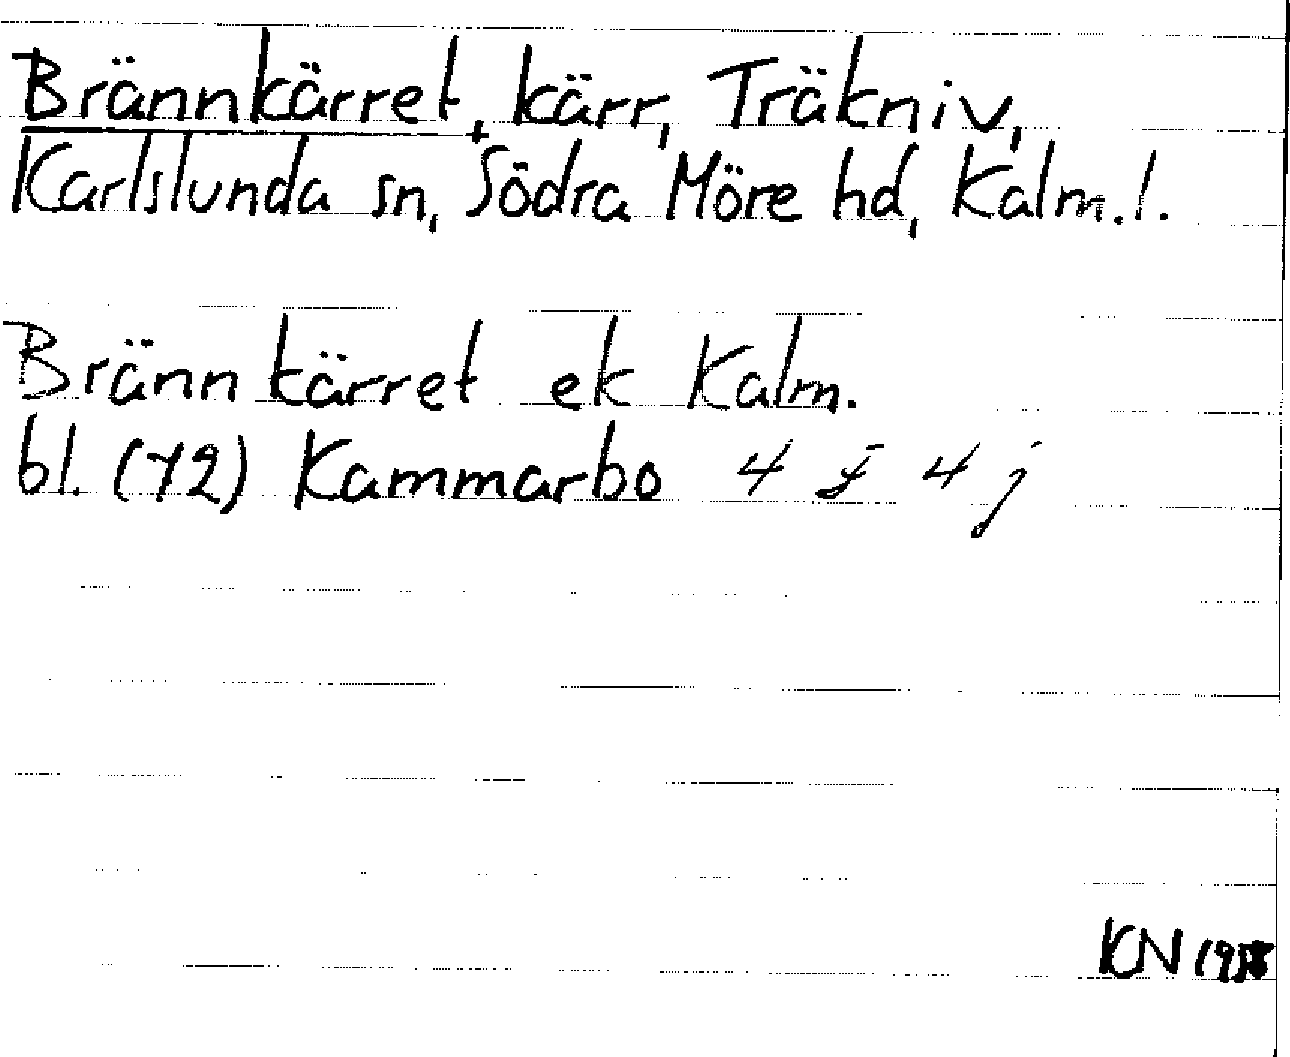 Brännkärret, kärr, Träkniv,
Karlslunda sn, Södra Möre hd, Kalm.l.
Brännkärret ek Kalm.
bl. (72) Kammarbo 4 f 4 j
KN